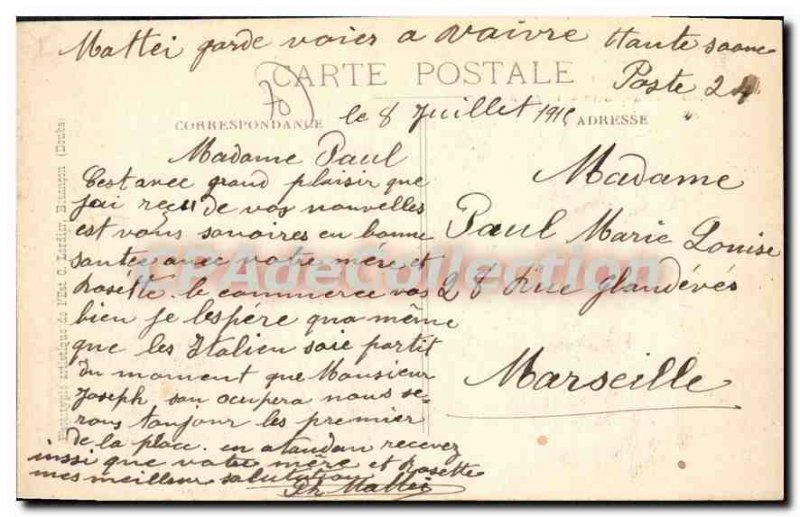 Mattei garde voies a Vaivre Haute Saone
Poste 24
CARTE POSTALE
70
le 8 Juillet 191
CORRESPONDANCE
ADRESSE
Madame Paul
C'est avec grand plaisir que
j'ai reçu de vos nouvelles
est vous savoires en bonne
santee avec votre mére et
Rosétte. le commerce vas
bien je l'espere qua même
que les Italien soie partit
du moment que Monsieur
Joseph san ocupera nous se-
rons toujour les premier
de la place. en atandan recevez
inssi que votre mére et Rosette
mes meilleur salutation
Ph Mattei
Madame
Paul Marie Louise
28 Rue Glandévés
Marseille
Phototypie artistique de l'Est C. Lardier, Besançon (Doubs)
CPAdeCollection